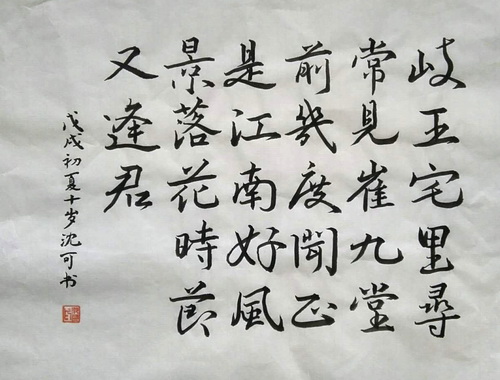 岐王宅里尋
常見崔九堂
前幾度聞正
是江南好風
景落花時節
又逢君
戊戌初夏十岁沈可书